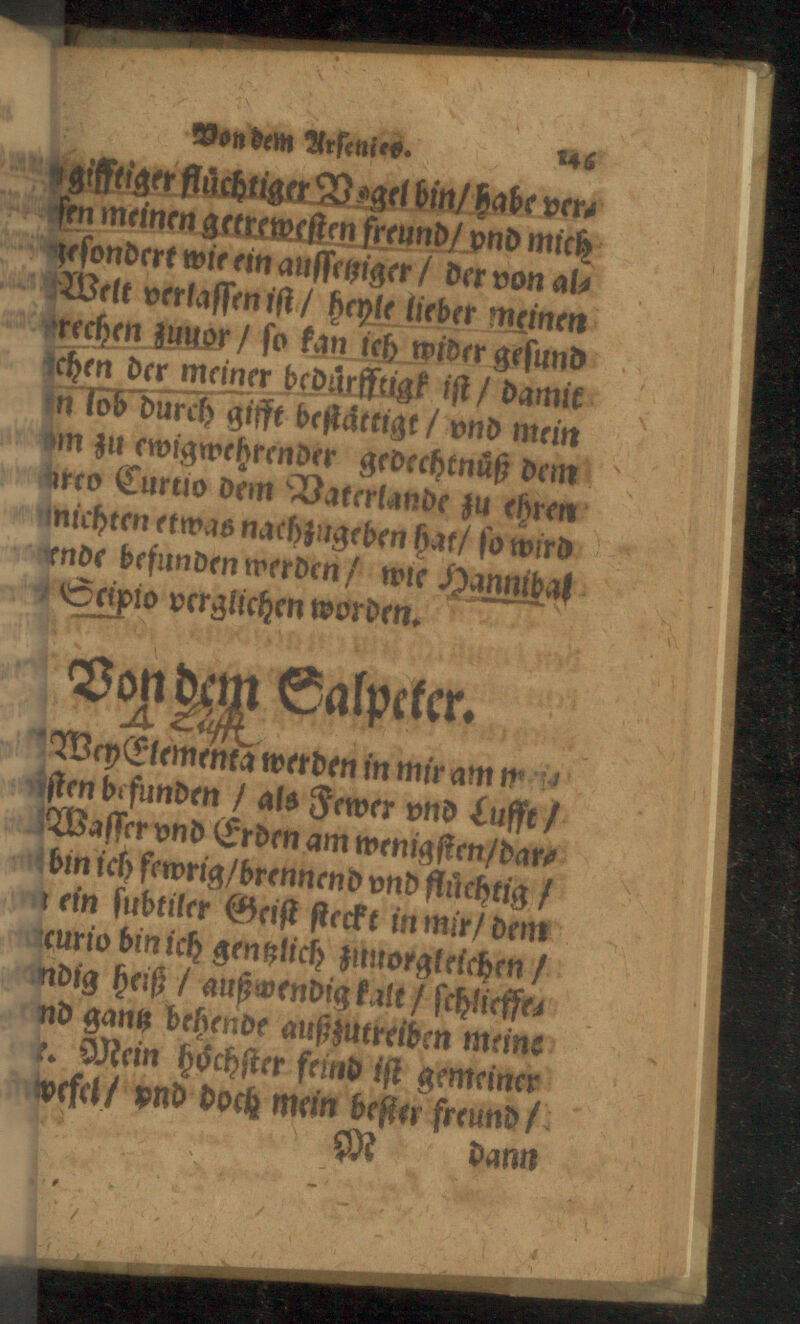 Von dem Arſenico. 146
gifftiger flüchtiger Vogel bin/ habe ver⸗
ſen meinen getreweſten freund/ vnd mich
geſondert wie ein auſſetziger / der von al⸗
Welt verlaſſen iſt / heyle lieber meinen
rechen zuuor / ſo kan ich wider geſund
chen der meiner bedürfftigk iſt / damit
n lob durch gifft beſtättigt / vnd mein
m zu ewigwehrender gedechtnüß dem
rco Curtio dem Vaterlande zu ehren
nichten etwas nachzugeben hat/ ſo wird
ende befunden werden / wie Hannibal
Scipio verglichen worden.
Von dem Salpeter.
Wey Elementa werden in mir am
ſten befunden / als Fewer vnd Lufft /
Waſſer vnd Erden am wenigſten/dar⸗
bin ich fewrig/brennend vnd flüchtig /
ein ſubtiler Geiſt ſteckt in mir/ dem
curio bin ich gentzlich zuuorgleichen /
ndig heiß / außwendig kalt / ſchlieffe⸗
nd gantz behende außzutreiben meine
. Mein höchſter feind iſt gemeiner
wefel/ vnd doch mein beſter freund /
M dann